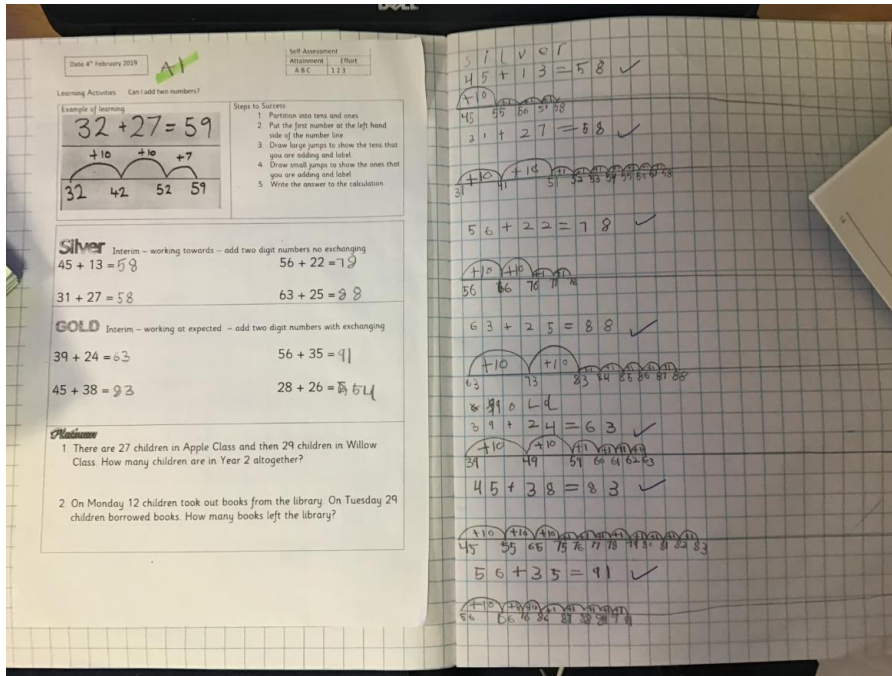 DELL
Date 4th February 2019
A1
Self Assessment
Attainment Effort
A B C 1 2 3
Learning Activities Can I add two numbers?
Example of learning
32 + 27 = 59
+10 +10 +7
32 42 52 59
Steps to Success
1 Partition into tens and ones
2 Put the first number at the left hand
side of the number line
3 Draw large jumps to show the tens that
you are adding and label
4 Draw small jumps to show the ones that
you are adding and label
5 Write the answer to the calculation
Silver Interim – working towards – add two digit numbers no exchanging
45 + 13 = 58 56 + 22 = 78
31 + 27 = 58 63 + 25 = 88
GOLD Interim – working at expected – add two digit numbers with exchanging
39 + 24 = 63 56 + 35 = 91
45 + 38 = 83 28 + 26 = 54
Platinum
1 There are 27 children in Apple Class and then 29 children in Willow
Class. How many children are in Year 2 altogether?
2 On Monday 12 children took out books from the library. On Tuesday 29
children borrowed books. How many books left the library?
silver
45 + 13 = 58
+10
45 55 56 57 58
31 + 27 = 58
+10 +10
31 41 51 52 53 54 55 56 57 58
56 + 22 = 78
+10 +10 +1 +1
56 66 76 77 78
63 + 25 = 88
+10 +10
63 73 83 84 85 86 87 88
gold
39 + 24 = 63
+10 +10 +1 +1 +1 +1
39 49 59 60 61 62 63
45 + 38 = 83
+10 +10 +10
45 55 65 75 76 77 78 79 80 81 82 83
56 + 35 = 91
+10
56 66 76 86 87 88